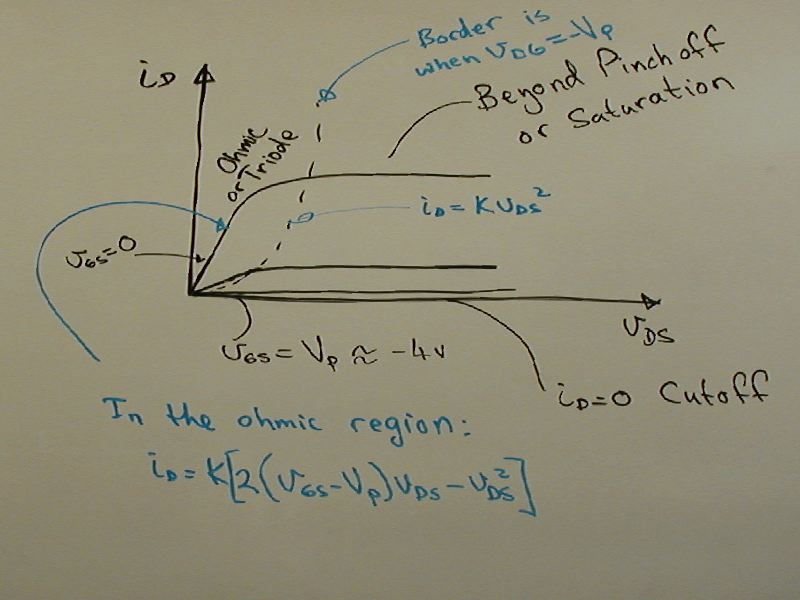 Border is
when VDG = -Vp
iD
Beyond Pinchoff
or Saturation
Ohmic
or Triode
iD = K VDS²
VGS = 0
VDS
VGS = Vp ≈ -4v
iD = 0 Cutoff
In the ohmic region:
iD = K[2(VGS - Vp)VDS - VDS²]